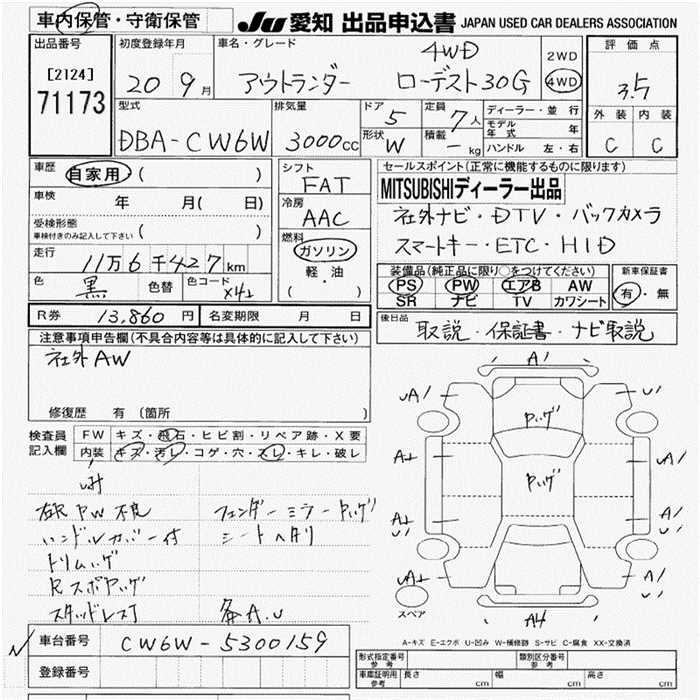 車内保管・守衛保管
JU 愛知 出品申込書 JAPAN USED CAR DEALERS ASSOCIATION
出品番号
[2124]
71173
初度登録年月
20 年 9 月
車名・グレード
アウトランダー
4WD
ローデスト30G
2WD
4WD
評価点
3.5
外装 内装
C C
型式
DBA-CW6W
排気量
3000cc
ドア
5
形状
W
定員
7人
積載
- kg
ディーラー・並行
モデル年式 年
ハンドル 左・右
車歴
自家用 ( )
車検
年 月( 日)
受検形態
車検付きのみ記入して下さい ( )
走行
11万6千427km
色
黒
色替
色コード
X42
シフト
FAT
冷房
AAC
燃料
ガソリン
軽・油
( )
セールスポイント(正常に機能するものに限ります)
MITSUBISHIディーラー出品
社外ナビ・DTV・バックカメラ
スマートキー・ETC・HID
装備品(純正品に限り○をつけてください)
PS PW エアB AW
SR ナビ TV カワシート
新車保証書
有・無
R券 13,860円 名変期限 月 日
後日品
取説・保証書・ナビ取説
注意事項申告欄(不具合内容等は具体的に記入して下さい)
社外AW
修復歴 有(箇所 )
検査員記入欄
FW キズ・飛石・ヒビ割・リペア跡・X要
内装 キズ・汚レ・コゲ・穴・スレ・キレ・破レ
右R PW 不良
ハンドルカバー付
トリムハゲ
Rスポヤッゲ
スタッドレス
フェンダーミラーヤッゲ
シートヘタリ
各A.U
A1
UA1
U1
ヤッゲ
ヤッゲ
A4
スペア
A-キズ E-エクボ U-凹み W-補修跡 S-サビ C-腐食 XX-交換済
車台番号 CW6W-5300159
登録番号
形式指定番号 参考
類別区分番号 参考
車庫証明用 参考 長さ cm 幅 cm 高さ cm